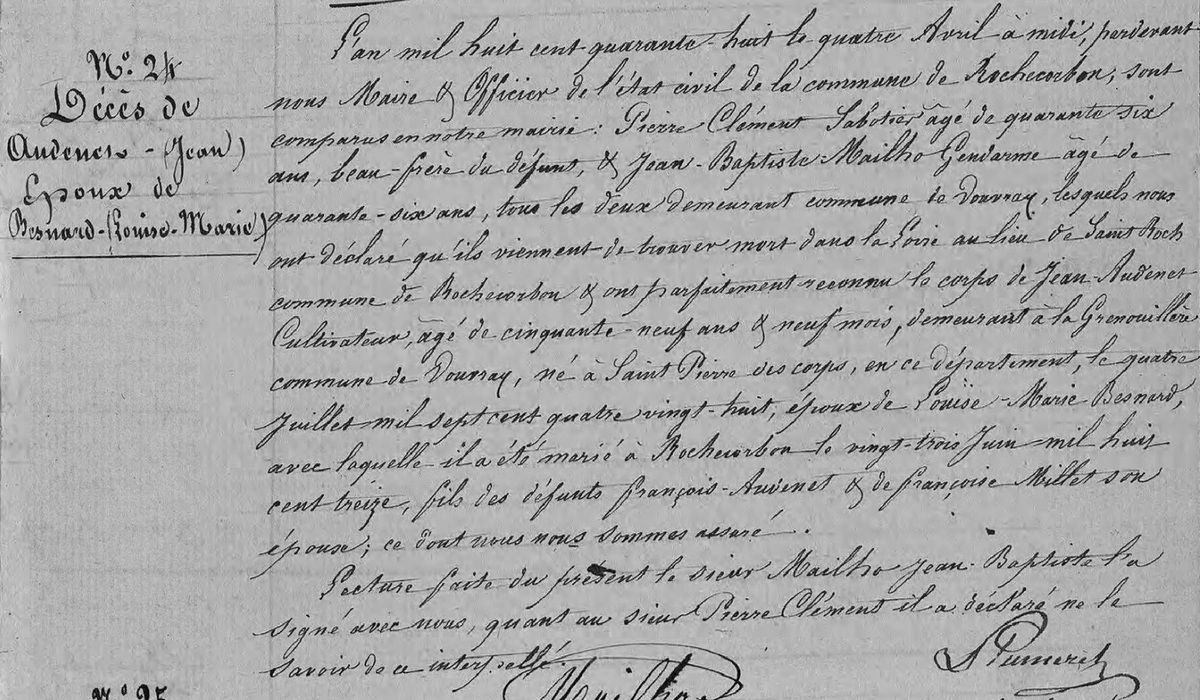 N.º 24
Décès de
Audenet - (Jean)
Epoux de
Besnard-(Louise-Marie)
L'an mil huit cent quarante-huit le quatre Avril à midi, pardevant
nous Maire & Officier de l'état civil de la commune de Rochecorbon, sont
comparus en notre mairie : Pierre Clément Sabotier âgé de quarante six
ans, beau-frère du défunt, & Jean-Baptiste Mailho Gendarme âgé de
quarante-six ans, tous les deux demeurant commune de Vouvray, lesquels nous
ont déclaré qu'ils viennent de trouver mort dans la Loire au lieu de Saint Roch
commune de Rochecorbon & ont parfaitement reconnu le corps de Jean Audenet
Cultivateur, âgé de cinquante-neuf ans & neuf mois, demeurant à la Grenouillère
commune de Vouvray, né à Saint Pierre des corps, en ce département, le quatre
Juillet mil sept cent quatre vingt-huit, époux de Louise-Marie Besnard,
avec laquelle il a été marié à Rochecorbon le vingt-trois Juin mil huit
cent treize, fils des défunts françois-Audenet & de françoise Millet son
épouse ; ce dont nous nous sommes assuré.
Lecture faite du présent le sieur Mailho Jean-Baptiste l'a
signé avec nous, quant au sieur Pierre Clément il a déclaré ne le
savoir de ce interpellé.
Mailho
N.º 25